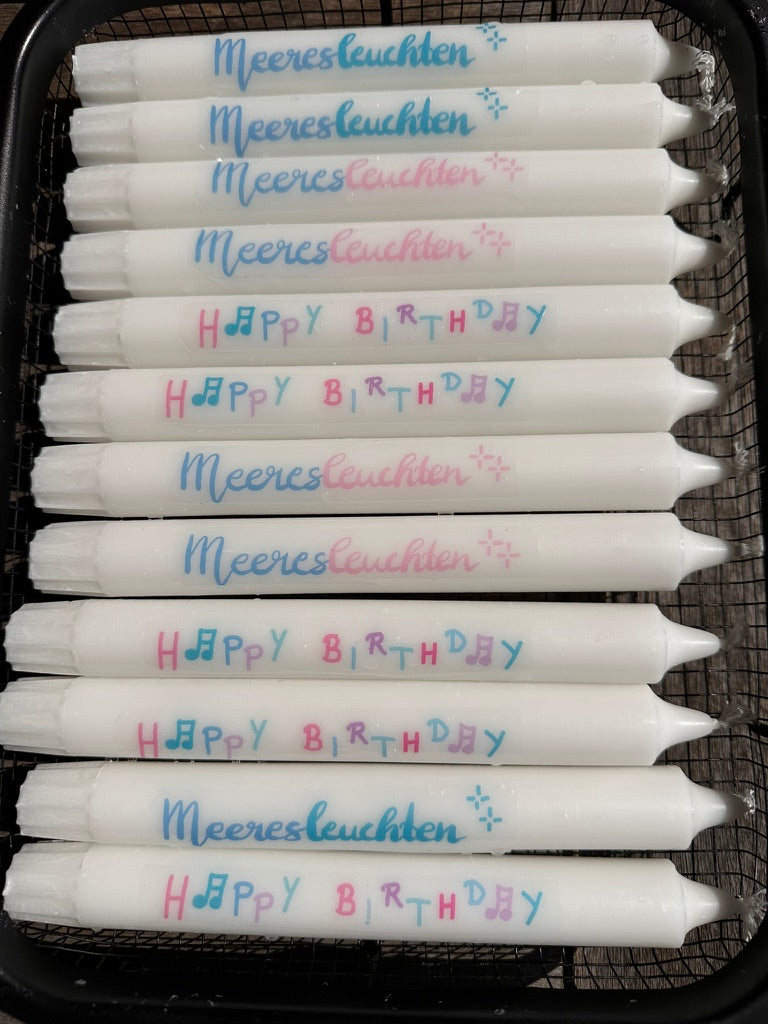 Meeresleuchten
Meeresleuchten
Meeresleuchten
Meeresleuchten
HAPPY BIRTHDAY
HAPPY BIRTHDAY
Meeresleuchten
Meeresleuchten
HAPPY BIRTHDAY
HAPPY BIRTHDAY
Meeresleuchten
HAPPY BIRTHDAY